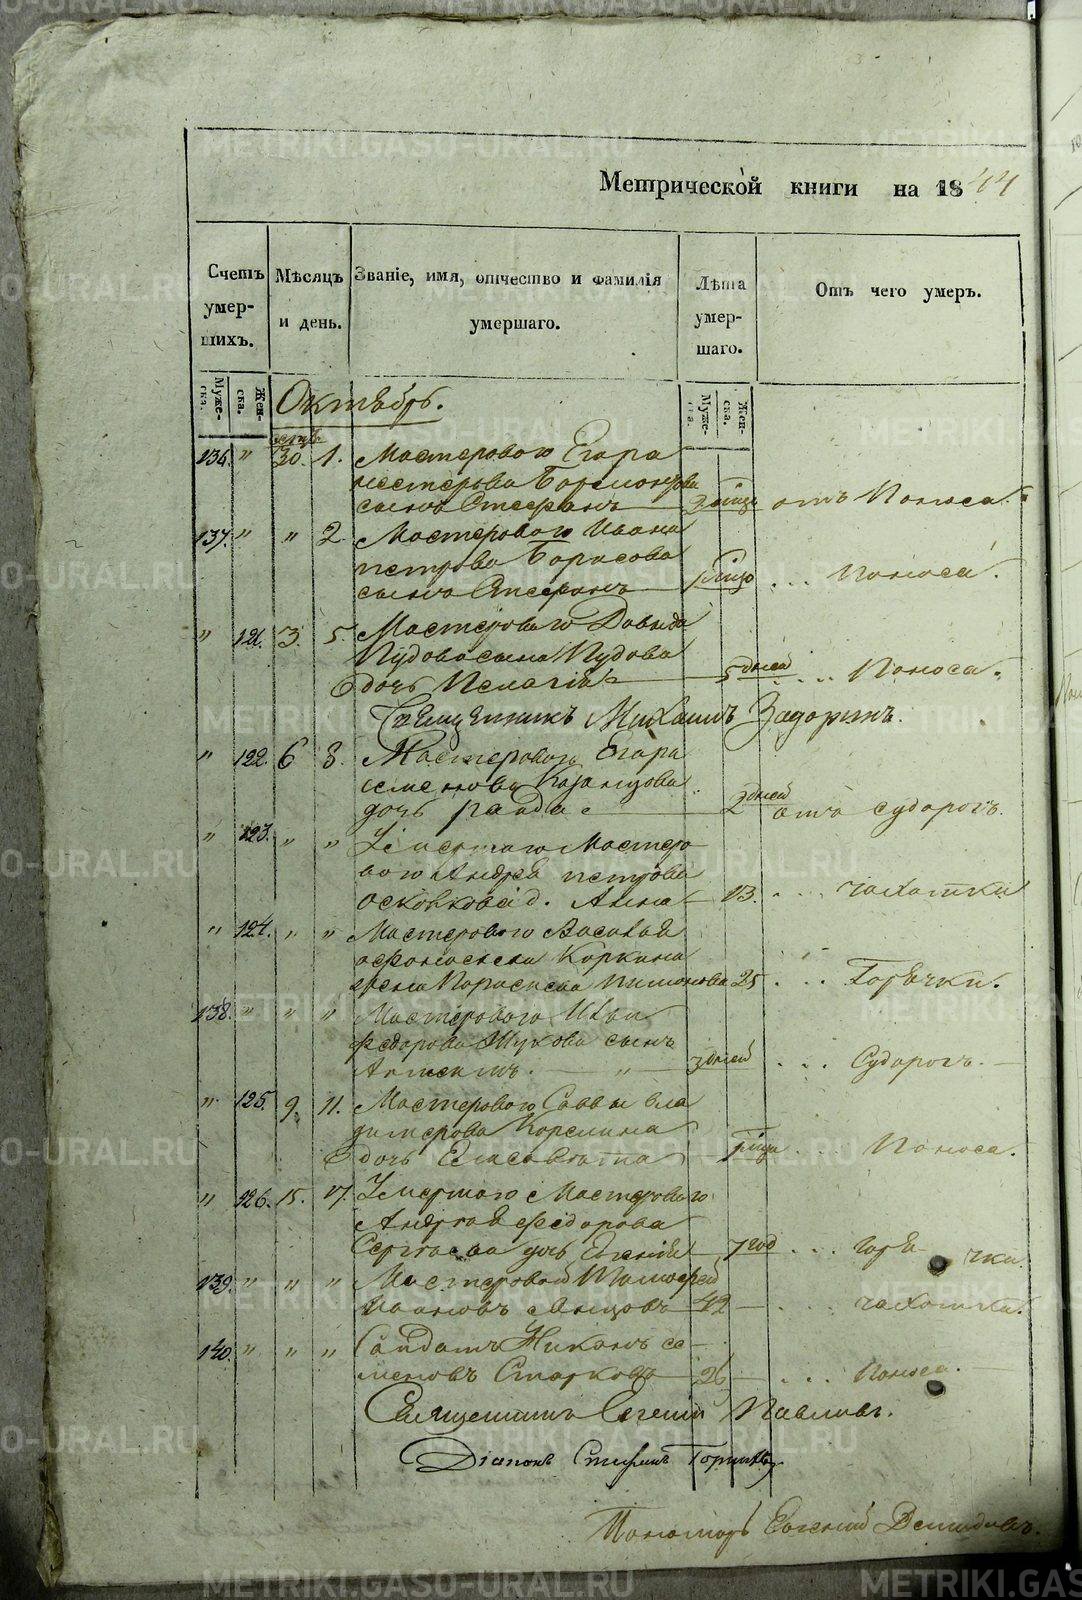 Метрической книги на 1844
Счетъ умер- шихъ.
Мѣсяцъ и день.
Званіе, имя, отчество и фамилія умершаго.
Лѣта умер- шаго.
Отъ чего умеръ.
Муже- ска.
Жен- ска.
Муже- ска.
Жен- ска.
Октябрь.
136. " 30. 1. Мастероваго Егора
сынъ Стефанъ отъ Поноса.
137. " " 2 Мастероваго Ивана
петрова Борисова
сынъ Стефанъ ... Поноса.
" 121. 3. 5. Мастероваго Давыда
Пудова сына Пудова
дочь Пелагія 5 дней ... Поноса.
Священникъ Михаилъ Задоринъ.
" 122. 6 8. Мастероваго Егора
семенова Казанцова
дочь 2 дней отъ судорогъ.
" 123. " " Умершаго Мастеро-
ваго Андрея петрова
д. Анна 13. ... чахотки
" 124. " " Мастероваго Василья
афонасьева Коркина
жена Параскева пимонова 25 ... Горячки.
138. " " " Мастероваго Ильи
федорова Жукова сынъ
3 дней ... Судорогъ.
" 125. 9. 11. Мастероваго Саввы вла
димерова Корелина
дочь Елисавета ... Поноса.
" 126. 15. 17. Умершаго Мастероваго
Андрея федорова
Сергеева дочь Евгенія 7 год ... горячки.
139. " " " Мастеровой Тимофей
Ивановъ 42 ... чахотки.
140. " " " Солдатъ Никонъ се-
меновъ Старковъ 26 ... Поноса.
Священникъ Евгеній Павловъ.
Діаконъ Стефанъ
Пономарь Евгеній Демидовъ.
METRIKI.GASO-URAL.RU